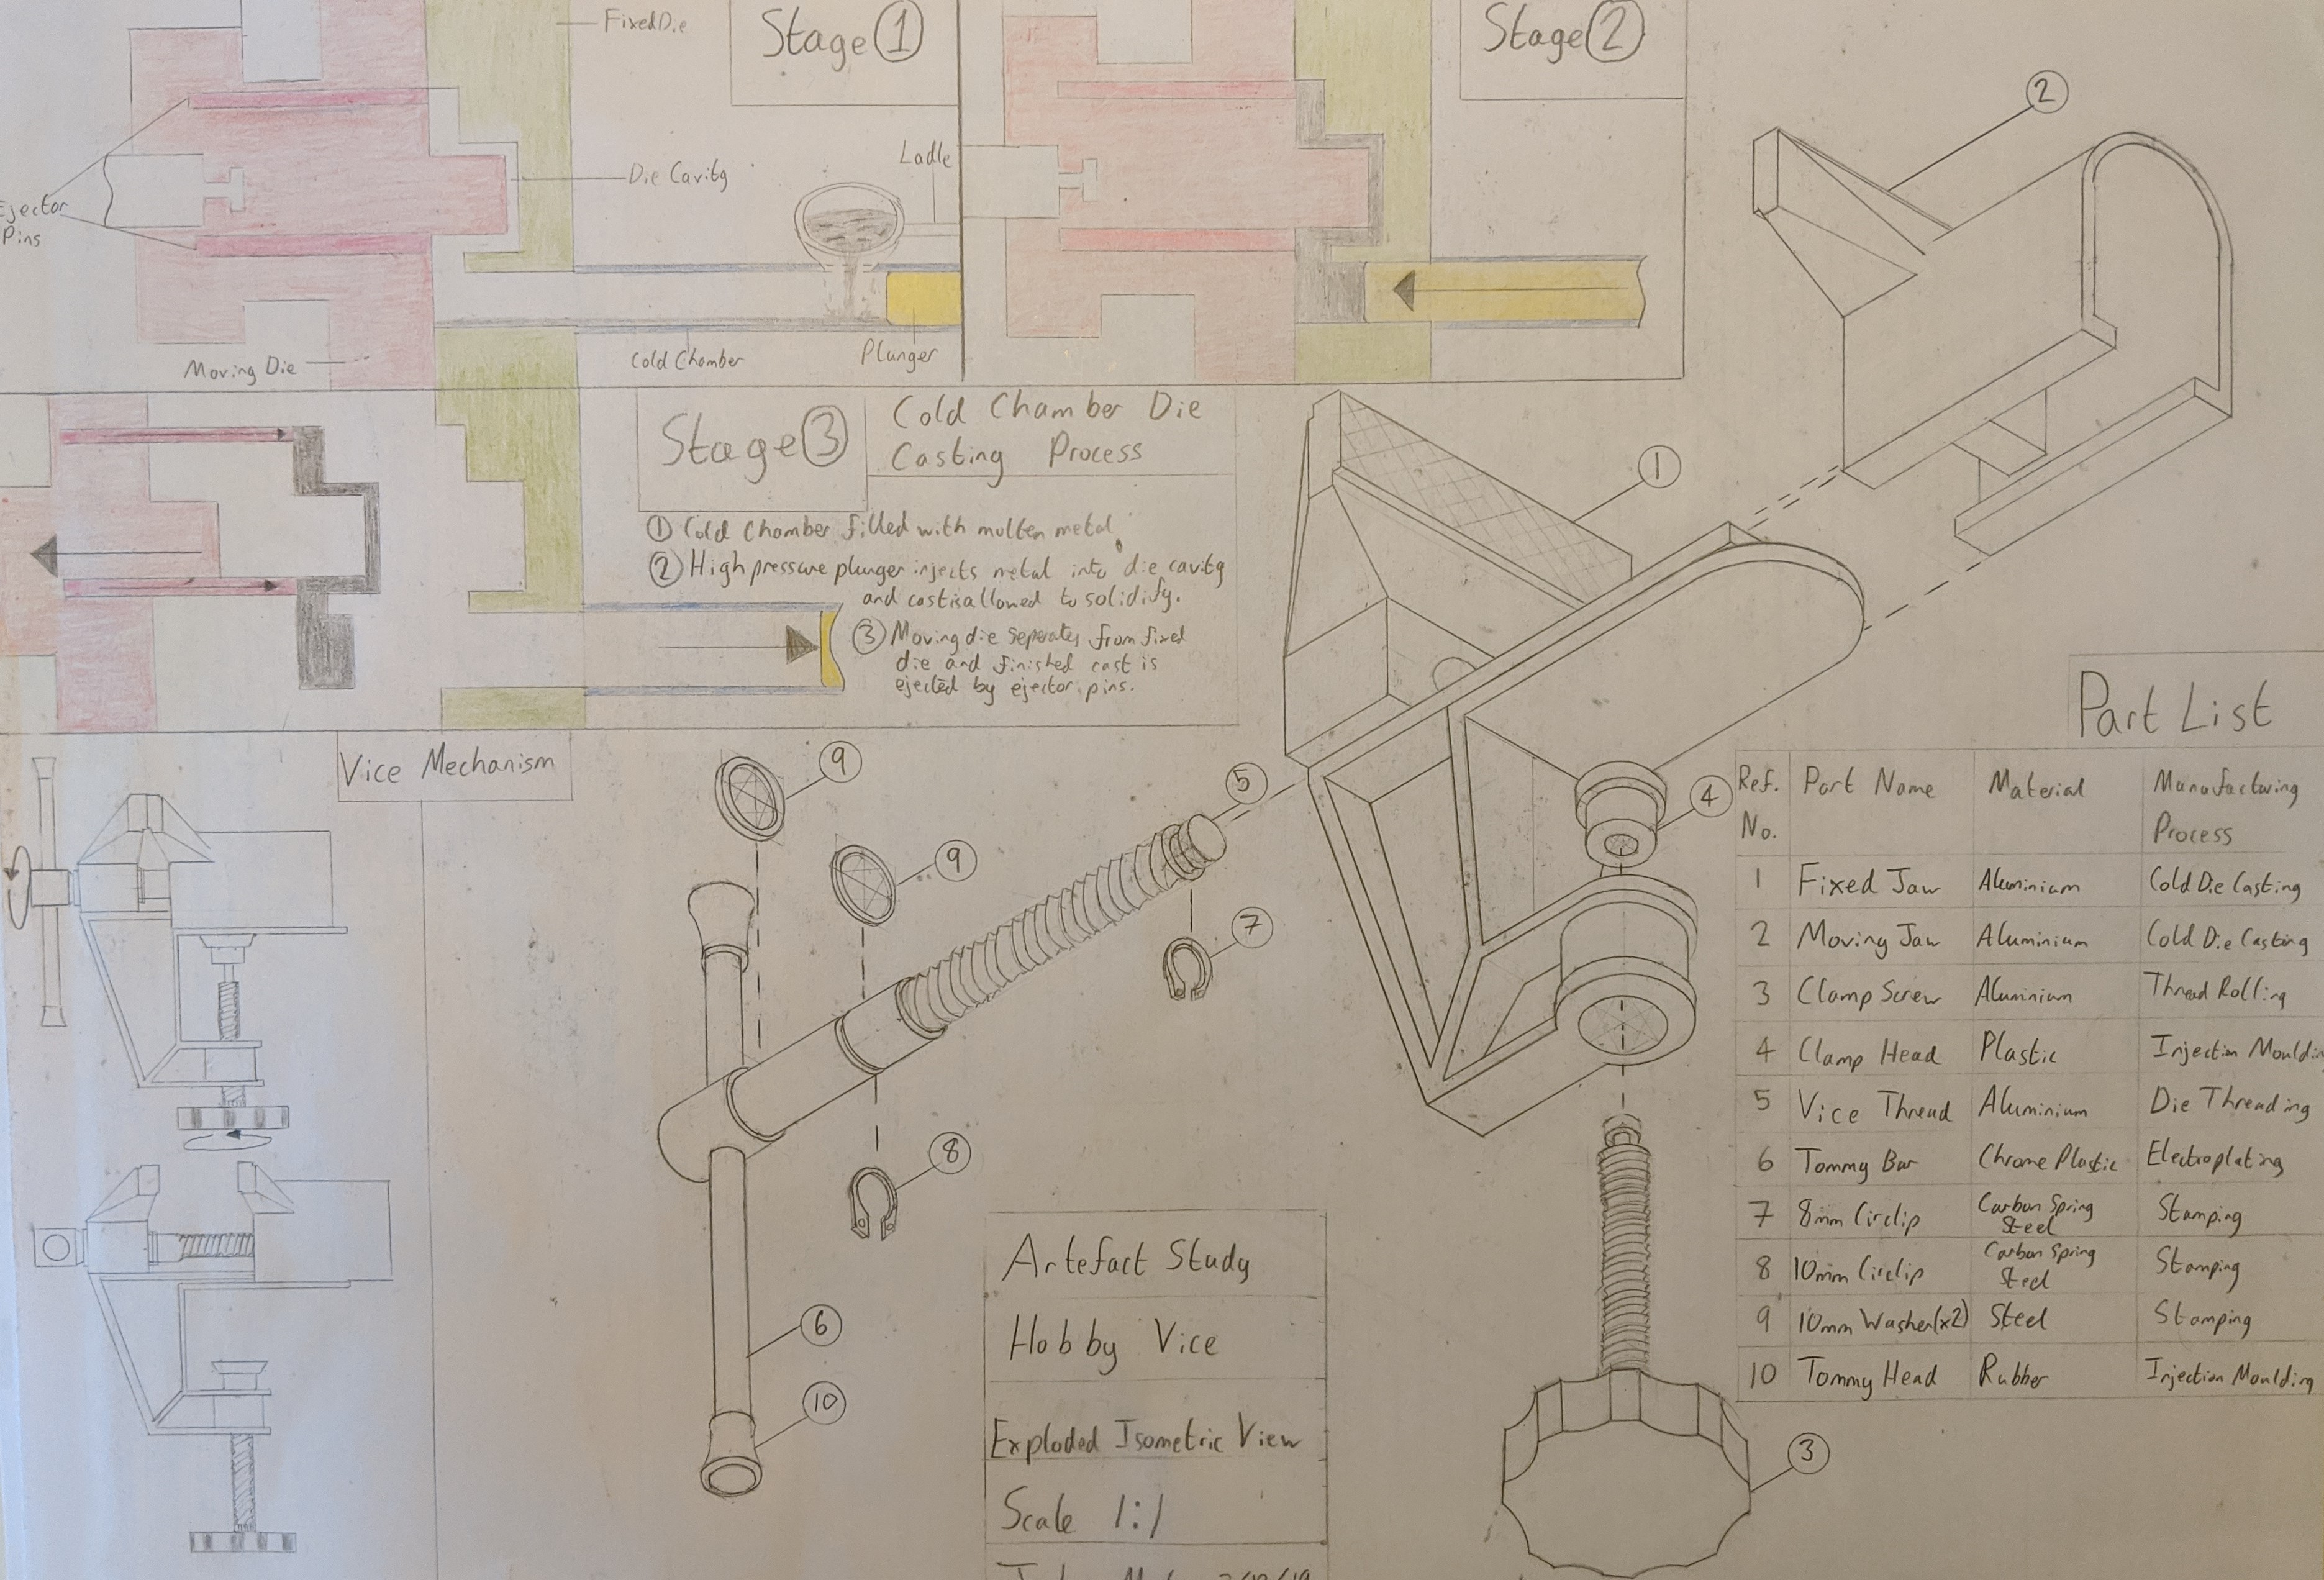 Fixed Die
Stage 1
Stage 2
2
Ladle
Die Cavity
Ejector
Pins
Cold Chamber
Plunger
Moving Die
Stage 3
Cold Chamber Die
Casting Process
1 Cold Chamber filled with molten metal.
2 High pressure plunger injects metal into die cavity
and cast is allowed to solidify.
3 Moving die seperates from fixed
die and finished cast is
ejected by ejector pins.
1
Vice Mechanism
9
9
5
4
7
8
6
10
3
Part List
Ref. No. Part Name Material Manufacturing Process
1 Fixed Jaw Aluminium Cold Die Casting
2 Moving Jaw Aluminium Cold Die Casting
3 Clamp Screw Aluminium Thread Rolling
4 Clamp Head Plastic Injection Mouldin
5 Vice Thread Aluminium Die Threading
6 Tommy Bar Chrome Plastic Electroplating
7 8mm Circlip Carbon Spring Steel Stamping
8 10mm Circlip Carbon Spring Steel Stamping
9 10mm Washer(x2) Steel Stamping
10 Tommy Head Rubber Injection Moulding
Artefact Study
Hobby Vice
Exploded Isometric View
Scale 1:1